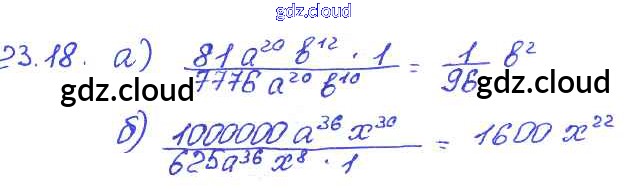 gdz.cloud
23.18. а) 81 a²⁰ b¹² · 1 / 7776 a²⁰ b¹⁰ = 1/96 b²
gdz.cloud gdz.cloud
б) 1000000 a³⁶ x³⁰ / 625 a³⁶ x⁸ · 1 = 1600 x²²